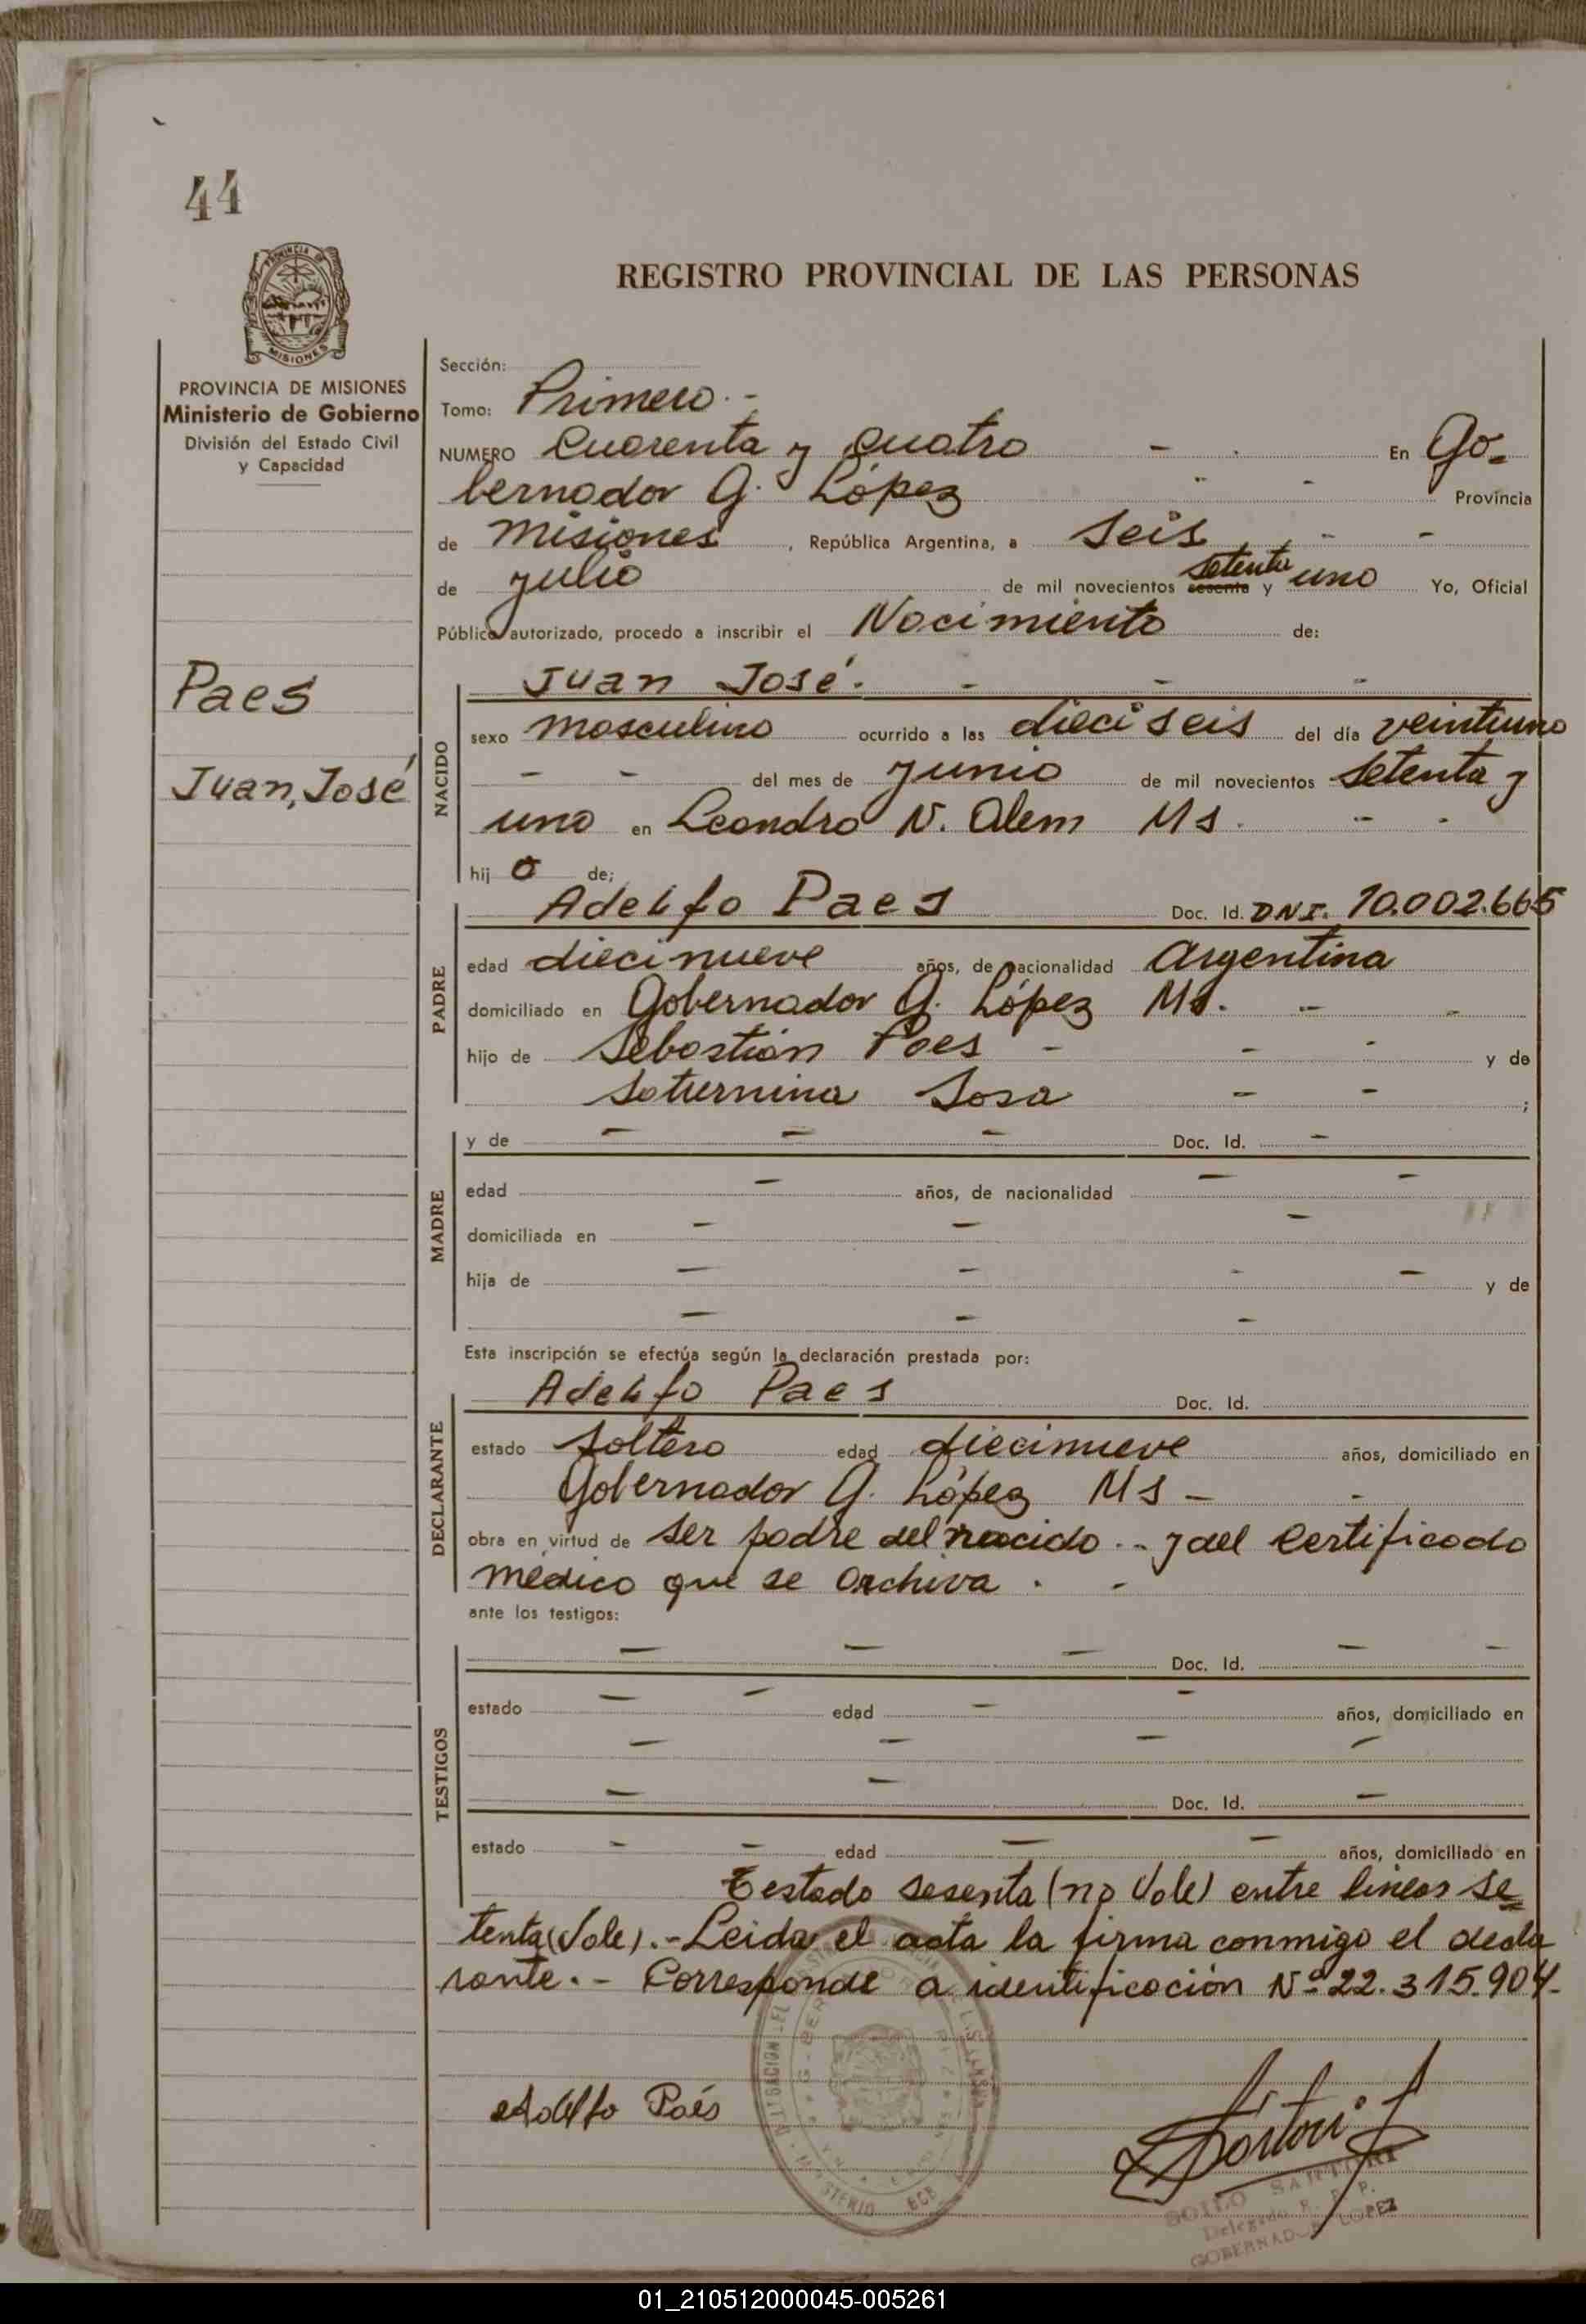 44
PROVINCIA DE MISIONES
Ministerio de Gobierno
División del Estado Civil
y Capacidad
Paes
Juan, José
REGISTRO PROVINCIAL DE LAS PERSONAS
Sección:
Tomo: Primero.-
NUMERO Cuarenta y cuatro - . En Go-
bernador G. López - - Provincia
de Misiones, República Argentina, a Seis - -
de julio de mil novecientos sesenta setenta y uno Yo, Oficial
Público autorizado, procedo a inscribir el Nacimiento de:
NACIDO
Juan José. - - -
sexo masculino ocurrido a las dieciseis del día veintiuno
- - del mes de junio de mil novecientos setenta y
uno en Leandro N. Alem Ms. - -
hij o de;
PADRE
Adelfo Paes Doc. Id. DNI. 10.002.665
edad diecinueve años, de nacionalidad Argentina
domiciliado en Gobernador G. López Ms. - -
hijo de Sebastián Paes - - - y de
Saturnina Sosa - - ;
MADRE
y de - - - Doc. Id. -
edad - años, de nacionalidad - -
domiciliada en - - -
hija de - - - - y de
- - -
Esta inscripción se efectúa según la declaración prestada por:
DECLARANTE
Adelfo Paes Doc. Id.
estado Soltero edad diecinueve años, domiciliado en
Gobernador G. López Ms - -
obra en virtud de ser padre del nacido .- y del Certificado
médico que se archiva . -
ante los testigos:
TESTIGOS
- - - Doc. Id. - -
estado - - edad - - años, domiciliado en
- - - -
- - Doc. Id. -
estado - - edad - - años, domiciliado en
Testado sesenta (no vale) entre lineas se
tenta (vale).- Leida el acta la firma conmigo el decla
rante.- Corresponde a identificación Nº 22.315.904-
Adelfo Paés
SARTORI
Delegado R. P. P.
GOBERNADOR LOPEZ
01_210512000045-005261